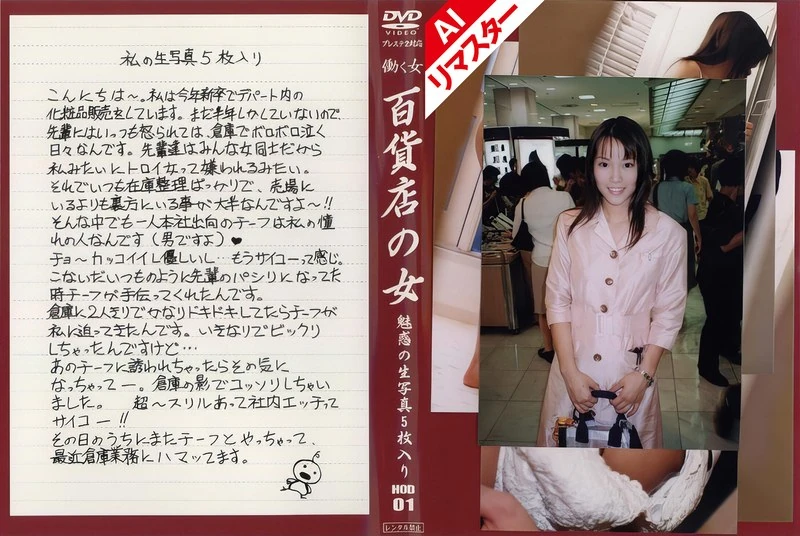 私の生写真5枚入り
こんにちは～。私は今年新卒でデパート内の
化粧品販売をしています。まだ半年しかしていないので、
先輩にはいっも怒られては、倉庫でボロボロ泣く
日々なんです。先輩達はみんな女同士だから
私みたいにトロイ女って嫌われるみたい。
それでいつも在庫整理ばっかりで、売場に
いるよりも裏方にいる事が大半なんですよ～!!
そんな中でも一人本社出向のチーフは私の憧
れの人なんです(男ですよ)♥
チョ～カッコイイし優しいし…もうサイコーって感じ。
こないだいつものように先輩のパシリになってた
時チーフが手伝ってくれたんです。
倉庫に2人きりでかなりドキドキしてたらチーフが
私に迫ってきたんです。いきなりでビックリ
しちゃったんですけど…
あのチーフに誘われちゃったらその気に
なっちゃってー。倉庫の影でコッソリしちゃい
ました。 超～スリルあって社内エッチって
サイコー!!
その日のうちにまたチーフとやっちゃって、
最近倉庫業務にハマッてます。
DVD
VIDEO
プレステ2対応
働く女
百貨店の女
魅惑の生写真5枚入り
HOD
01
レンタル禁止
AI
リマスター